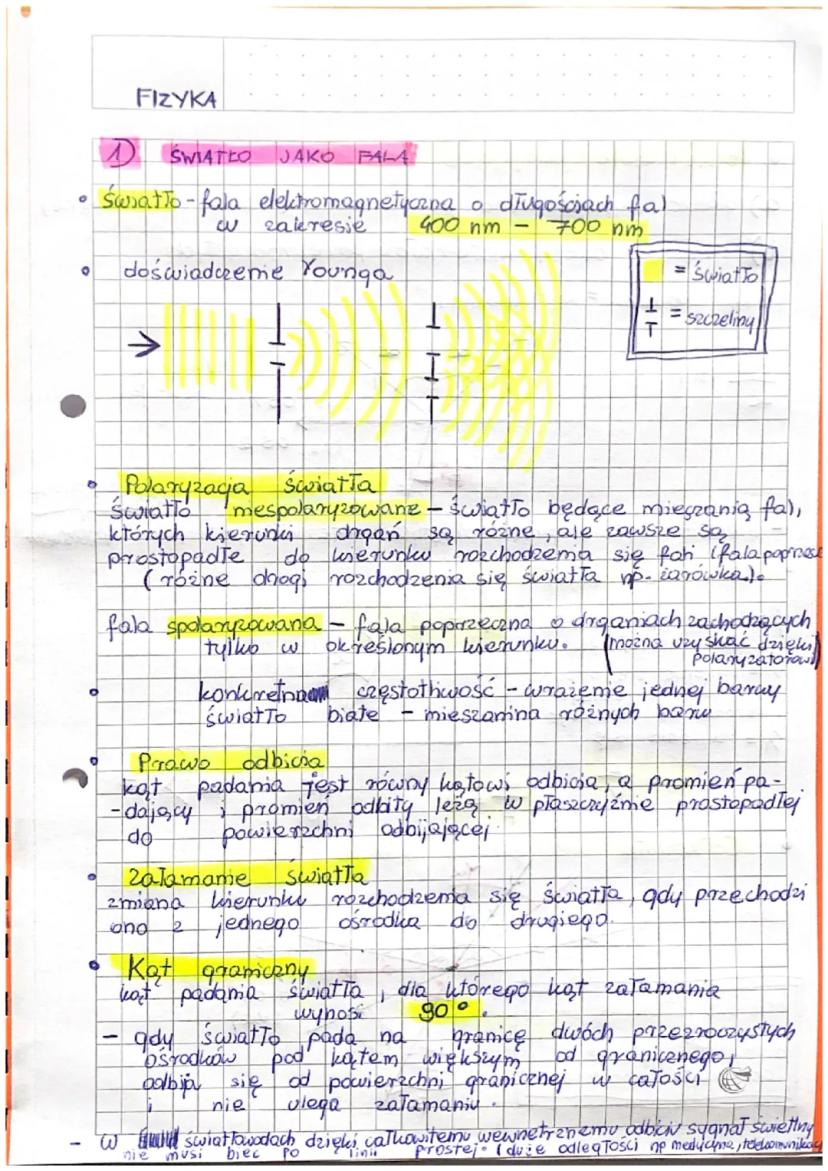 FIZYKA
1) ŚWIATŁO JAKO FALA
• światło - fala elektromagnetyczna o długościach fal
w zakresie 400 nm - 700 nm
• doświadczenie Younga
= światło
= szczeliny
• Polaryzacja światła
światło niespolaryzowane - światło będące mieszanią fal,
których kierunki drgań są różne, ale zawsze są
prostopadłe do kierunku rozchodzenia się fali (fala poprzecz
(różne drogi rozchodzenia się światła np. żarówka).
fala spolaryzowana - fala poprzeczna o drganiach zachodzących
tylko w określonym kierunku. (można uzyskać dzięki
polaryzatorowi)
• konkretna częstotliwość - wrażenie jednej barwy
światło białe - mieszanina różnych barw
• Prawo odbicia
kąt padania jest równy kątowi odbicia, a promień pa-
-dający i promień odbity leżą w płaszczyźnie prostopadłej
do powierzchni odbijającej
• załamanie światła
zmiana kierunku rozchodzenia się światła, gdy przechodzi
ono z jednego ośrodka do drugiego.
• Kąt graniczny
kąt padania światła, dla którego kąt załamania
wynosi 90°.
- gdy światło pada na granicę dwóch przezroczystych
ośrodków pod kątem większym od granicznego,
odbija się od powierzchni granicznej w całości
i nie ulega załamaniu.
- W światłowodach dzięki całkowitemu wewnetrznemu odbiciu sygnał świetlny
nie musi biec po linii prostej. (duże odległości np medycyna, telekomunikacj